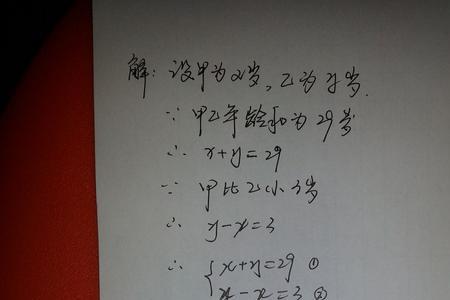 解：设甲为x岁，乙为y岁.
∵ 甲乙年龄和为29岁
∴ x+y=29
∵ 甲比乙小3岁
∴ y-x=3
∴ { x+y=29 ①
y-x=3 ②